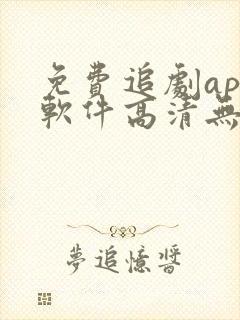 免費追劇ap
軟件高清無
夢追憶醬